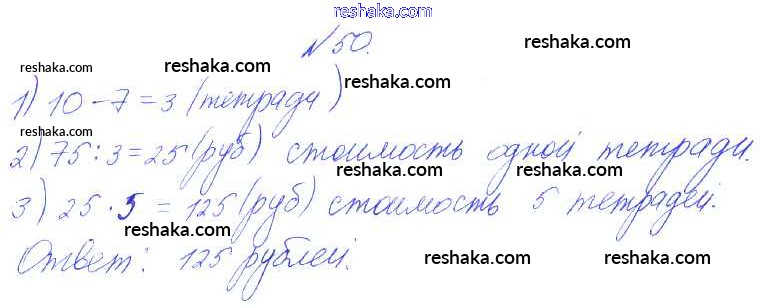 reshaka.com
№50.
reshaka.com
reshaka.com
reshaka.com
reshaka.com
1) 10 - 7 = 3 (тетради)
reshaka.com
2) 75 : 3 = 25 (руб) стоимость одной тетради.
reshaka.com
reshaka.com
3) 25 · 5 = 125 (руб) стоимость 5 тетрадей.
reshaka.com
reshaka.com
Ответ: 125 рублей.
reshaka.com
reshaka.com
reshaka.com